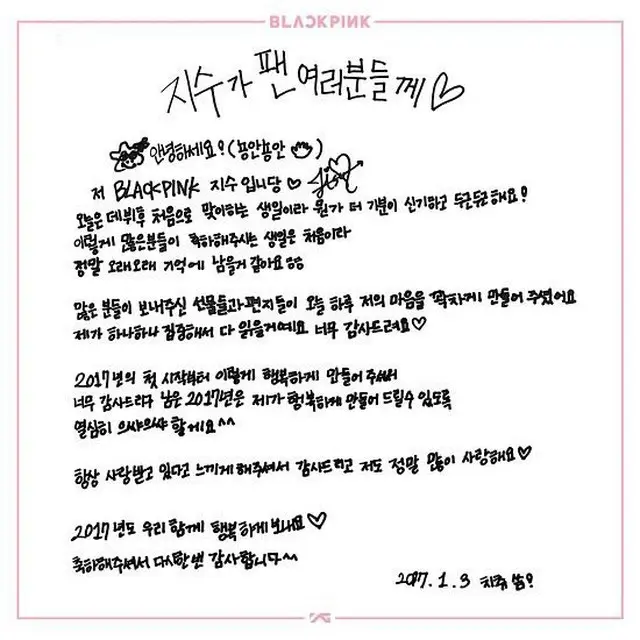 BLACKPINK
지수가 팬 여러분들께♡
안녕하세요! (뇽안뇽안)
저 BLACKPINK 지수 입니당♡
오늘은 데뷔후 처음으로 맞이하는 생일이라 뭔가 더 기분이 신기하고 두근두근해요!
이렇게 많은분들이 축하해주시는 생일은 처음이라
정말 오래오래 기억에 남을거 같아요
많은 분들이 보내주신 선물들과 편지들이 오늘 하루 저의 마음을 꽉차게 만들어 주셨어요
제가 하나하나 집중해서 다 읽을거예요 너무 감사드려요♡
2017년의 첫 시작부터 이렇게 행복하게 만들어 주셔서
너무 감사드리구 남은 2017년은 제가 행복하게 만들어 드릴수 있도록
열심히 으쌰으쌰 할게요^^
항상 사랑받고 있다고 느끼게 해주셔서 감사드리고 저도 정말 많이 사랑해요♡
2017년도 우리 함께 행복하게 보내요♡
축하해주셔서 다시한번 감사합니다^^
2017.1.3 치쮸 씀!
YG